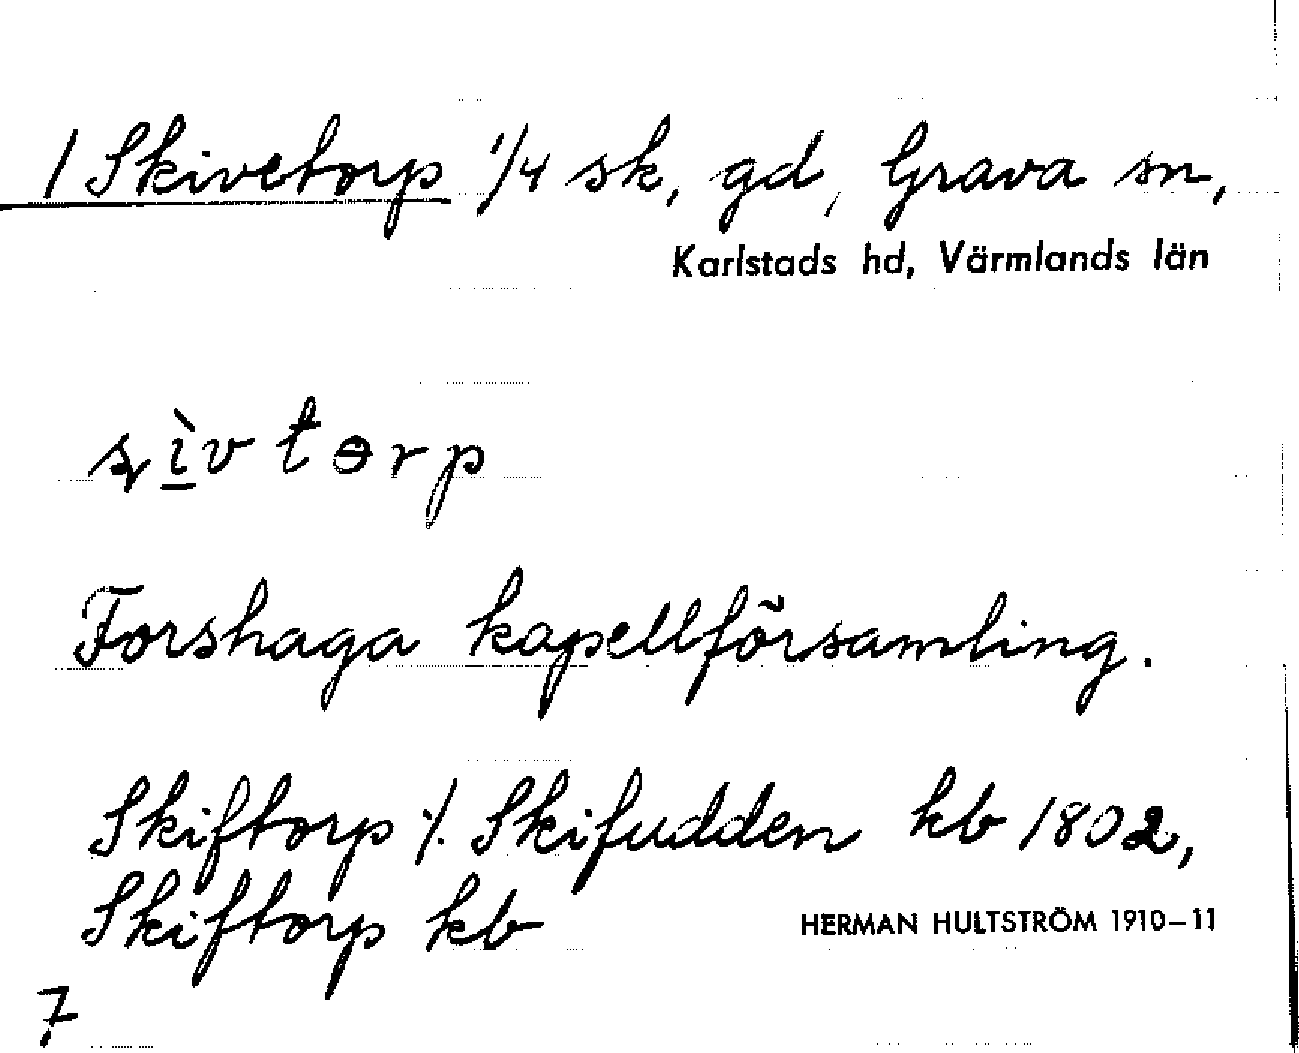 1 Skivetorp 1/4 sk, gd, Grava sn,
Karlstads hd, Värmlands län
ʂìv tɵrp
Forshaga kapellförsamling.
Skiftorp ./. Skifudden kb 1802,
Skiftorp kb
HERMAN HULTSTRÖM 1910-11
7